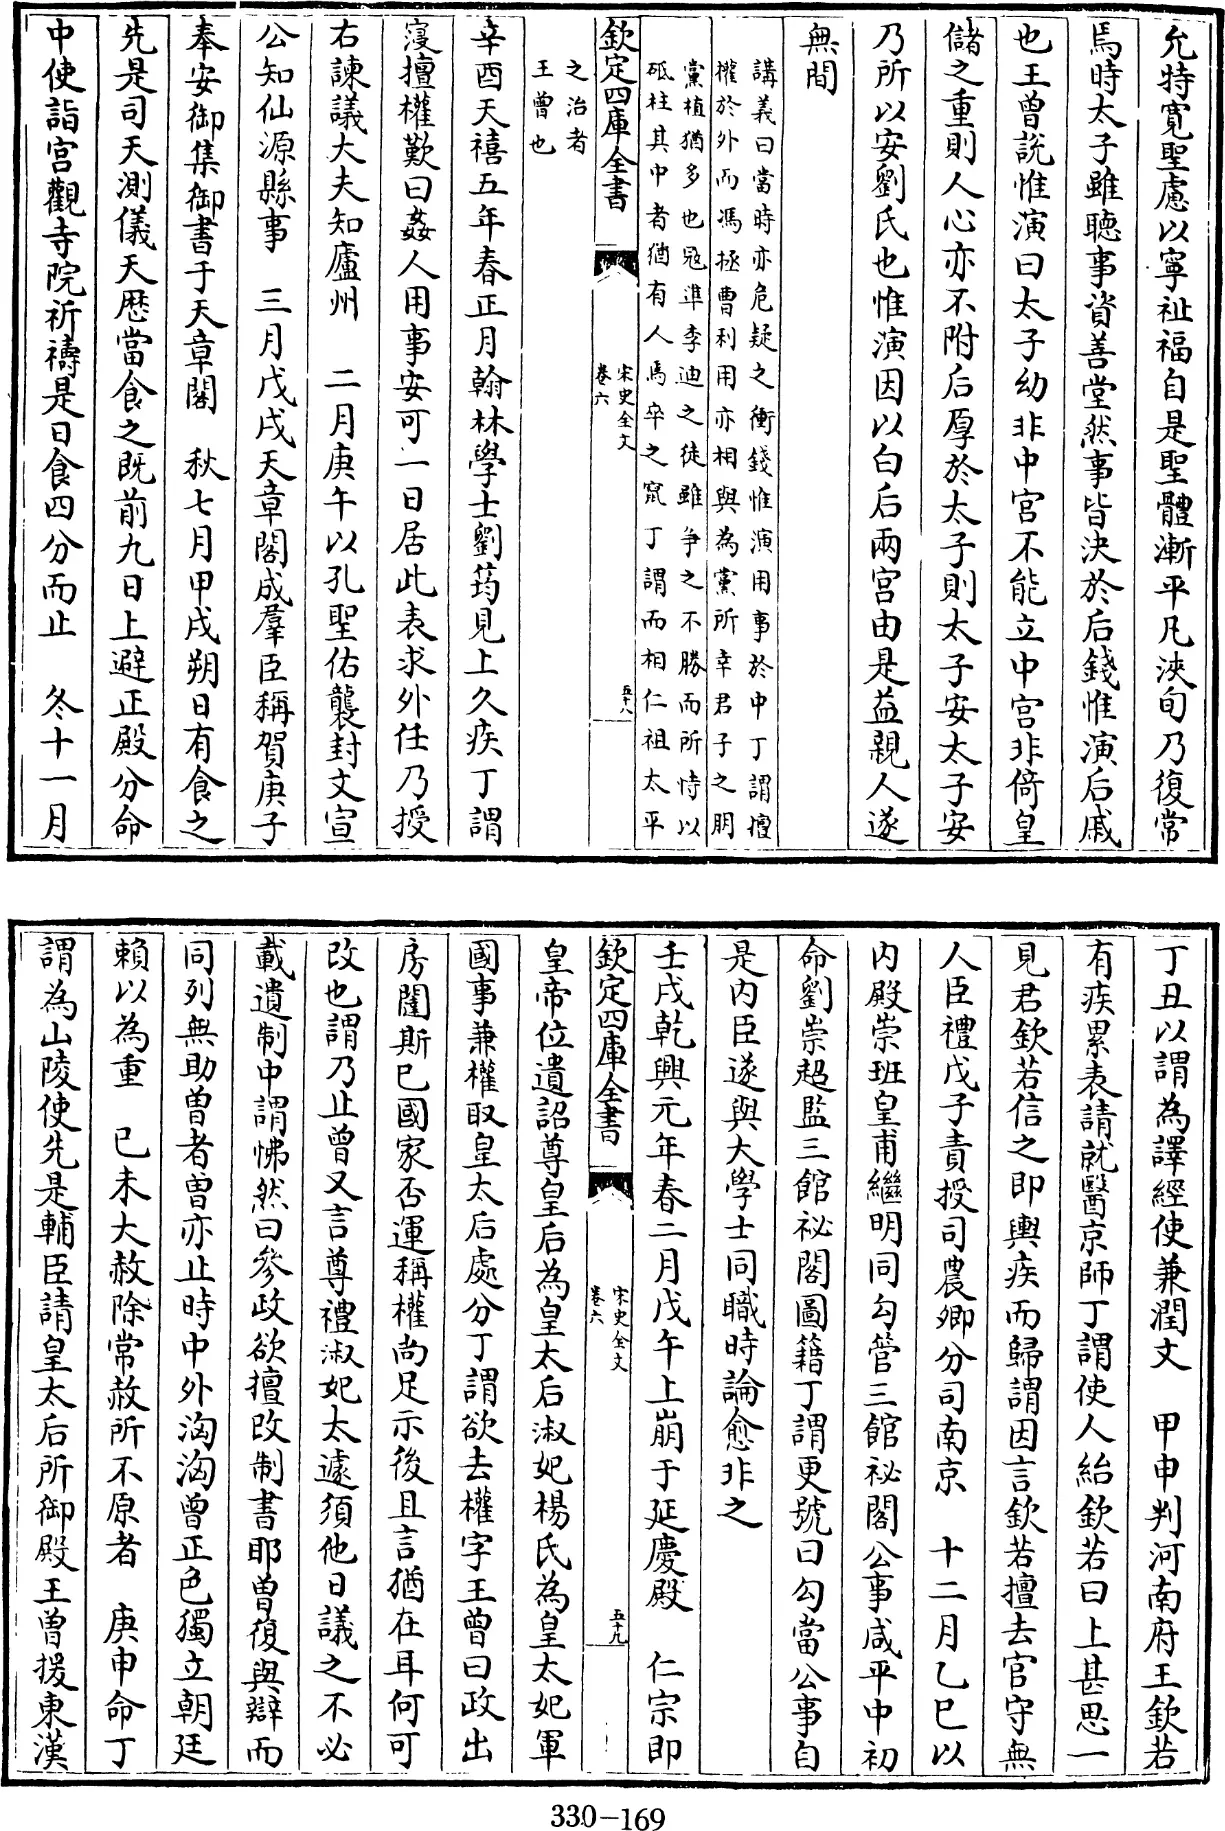 允特寛聖慮以寧祉福自是聖體漸平凡浹旬乃復常
焉時太子雖聽事資善堂然事皆決於后錢惟演后戚
也王曾説惟演曰太子幼非中宮不能立中宮非倚皇
儲之重則人心亦不附后厚於太子則太子安太子安
乃所以安劉氏也惟演因以白后兩宮由是益親人遂
無間
講義曰當時亦危疑之衝錢惟演用事於中丁謂擅
權於外而馮拯曹利用亦相與為黨所幸君子之朋
黨植猶多也冦準李迪之徒雖争之不勝而所恃以
砥柱其中者猶有人焉卒之竄丁謂而相仁祖太平
欽定四庫全書
宋史全文
卷六
五十八
之治者
王曾也
辛酉天禧五年春正月翰林學士劉筠見上久疾丁謂
寖擅權歎曰姦人用事安可一日居此表求外任乃授
右諫議大夫知廬州 二月庚午以孔聖佑襲封文宣
公知仙源縣事 三月戊戌天章閣成羣臣稱賀庚子
奉安御集御書于天章閣 秋七月甲戌朔日有食之
先是司天測儀天歴當食之既前九日上避正殿分命
中使詣宮觀寺院祈禱是日食四分而止 冬十一月
丁丑以謂為譯經使兼潤文 甲申判河南府王欽若
有疾累表請就醫京師丁謂使人紿欽若曰上甚思一
見君欽若信之即輿疾而歸謂因言欽若擅去官守無
人臣禮戊子責授司農卿分司南京 十二月乙巳以
内殿崇班皇甫繼明同勾管三館祕閣公事咸平中初
命劉崇超監三館祕閣圖籍丁謂更號曰勾當公事自
是内臣遂與大學士同職時論愈非之
壬戌乾興元年春二月戊午上崩于延慶殿 仁宗即
欽定四庫全書
宋史全文
卷六
五十九
皇帝位遺詔尊皇后為皇太后淑妃楊氏為皇太妃軍
國事兼權取皇太后處分丁謂欲去權字王曾曰政出
房闥斯已國家否運稱權尚足示後且言猶在耳何可
改也謂乃止曾又言尊禮淑妃太遽須他日議之不必
載遺制中謂怫然曰參政欲擅改制書耶曽復與辯而
同列無助曽者曽亦止時中外洶洶曾正色獨立朝廷
賴以為重 已未大赦除常赦所不原者 庚申命丁
謂為山陵使先是輔臣請皇太后所御殿王曾援東漢
330-169